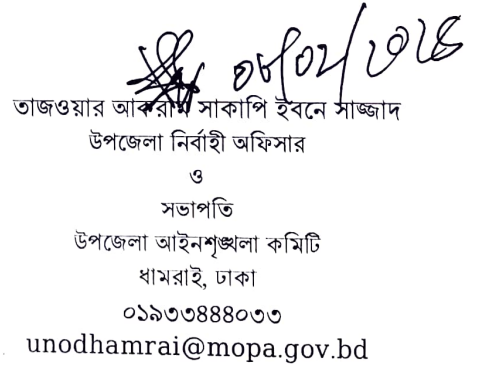 তাজওয়ার আকরাম সাকাপি ইবনে সাজ্জাদ
উপজেলা নির্বাহী অফিসার
ও
সভাপতি
উপজেলা আইনশৃঙ্খলা কমিটি
ধামরাই, ঢাকা
০১৯৩৩৪৪৪০৩৩
unodhamrai@mopa.gov.bd